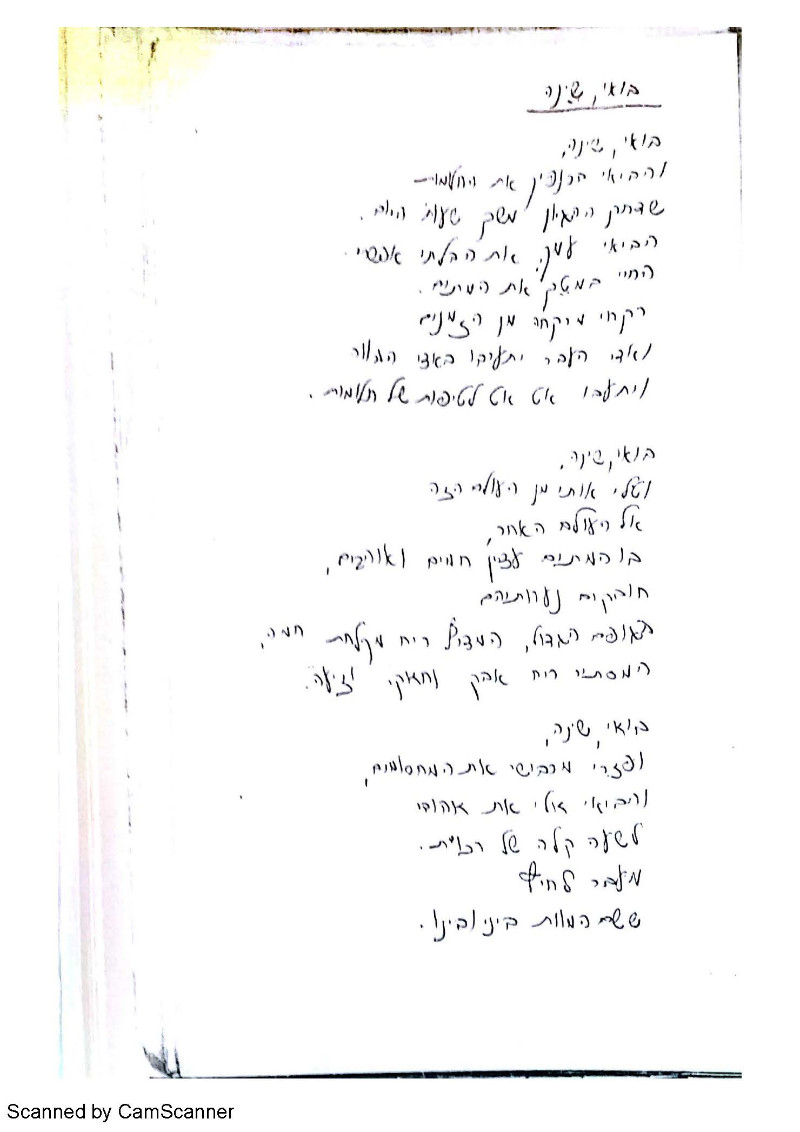 בואי, שינה
בואי, שינה,
והביאי בכנפיך את החלומות
שדחק ההגיון משך שעות היום.
הביאי עמך את הבלתי אפשרי.
החיי במטך את המתים.
רקחי מרקחה מן הזמנים
ואדי העבר יתערבו באדי המחר
ויתעבו אט אט לטיפות של חלומות.
בואי, שינה,
וטלי אותי מן העולם הזה
אל העולם האחר,
בו המתים עדיין חמים ואוהבים,
חובקים נערותיהם
בגופם הגדול, המדיף ריח מקלחת חמה,
המסתיר ריח אבק וחאקי זיעה.
בואי, שינה,
ופזרי מכבישי את המחסומים,
והביאי אלי את אהובי
לשעה קלה של רכות.
מעבר לחיץ
ששם המוות ביני ובינו.
Scanned by CamScanner